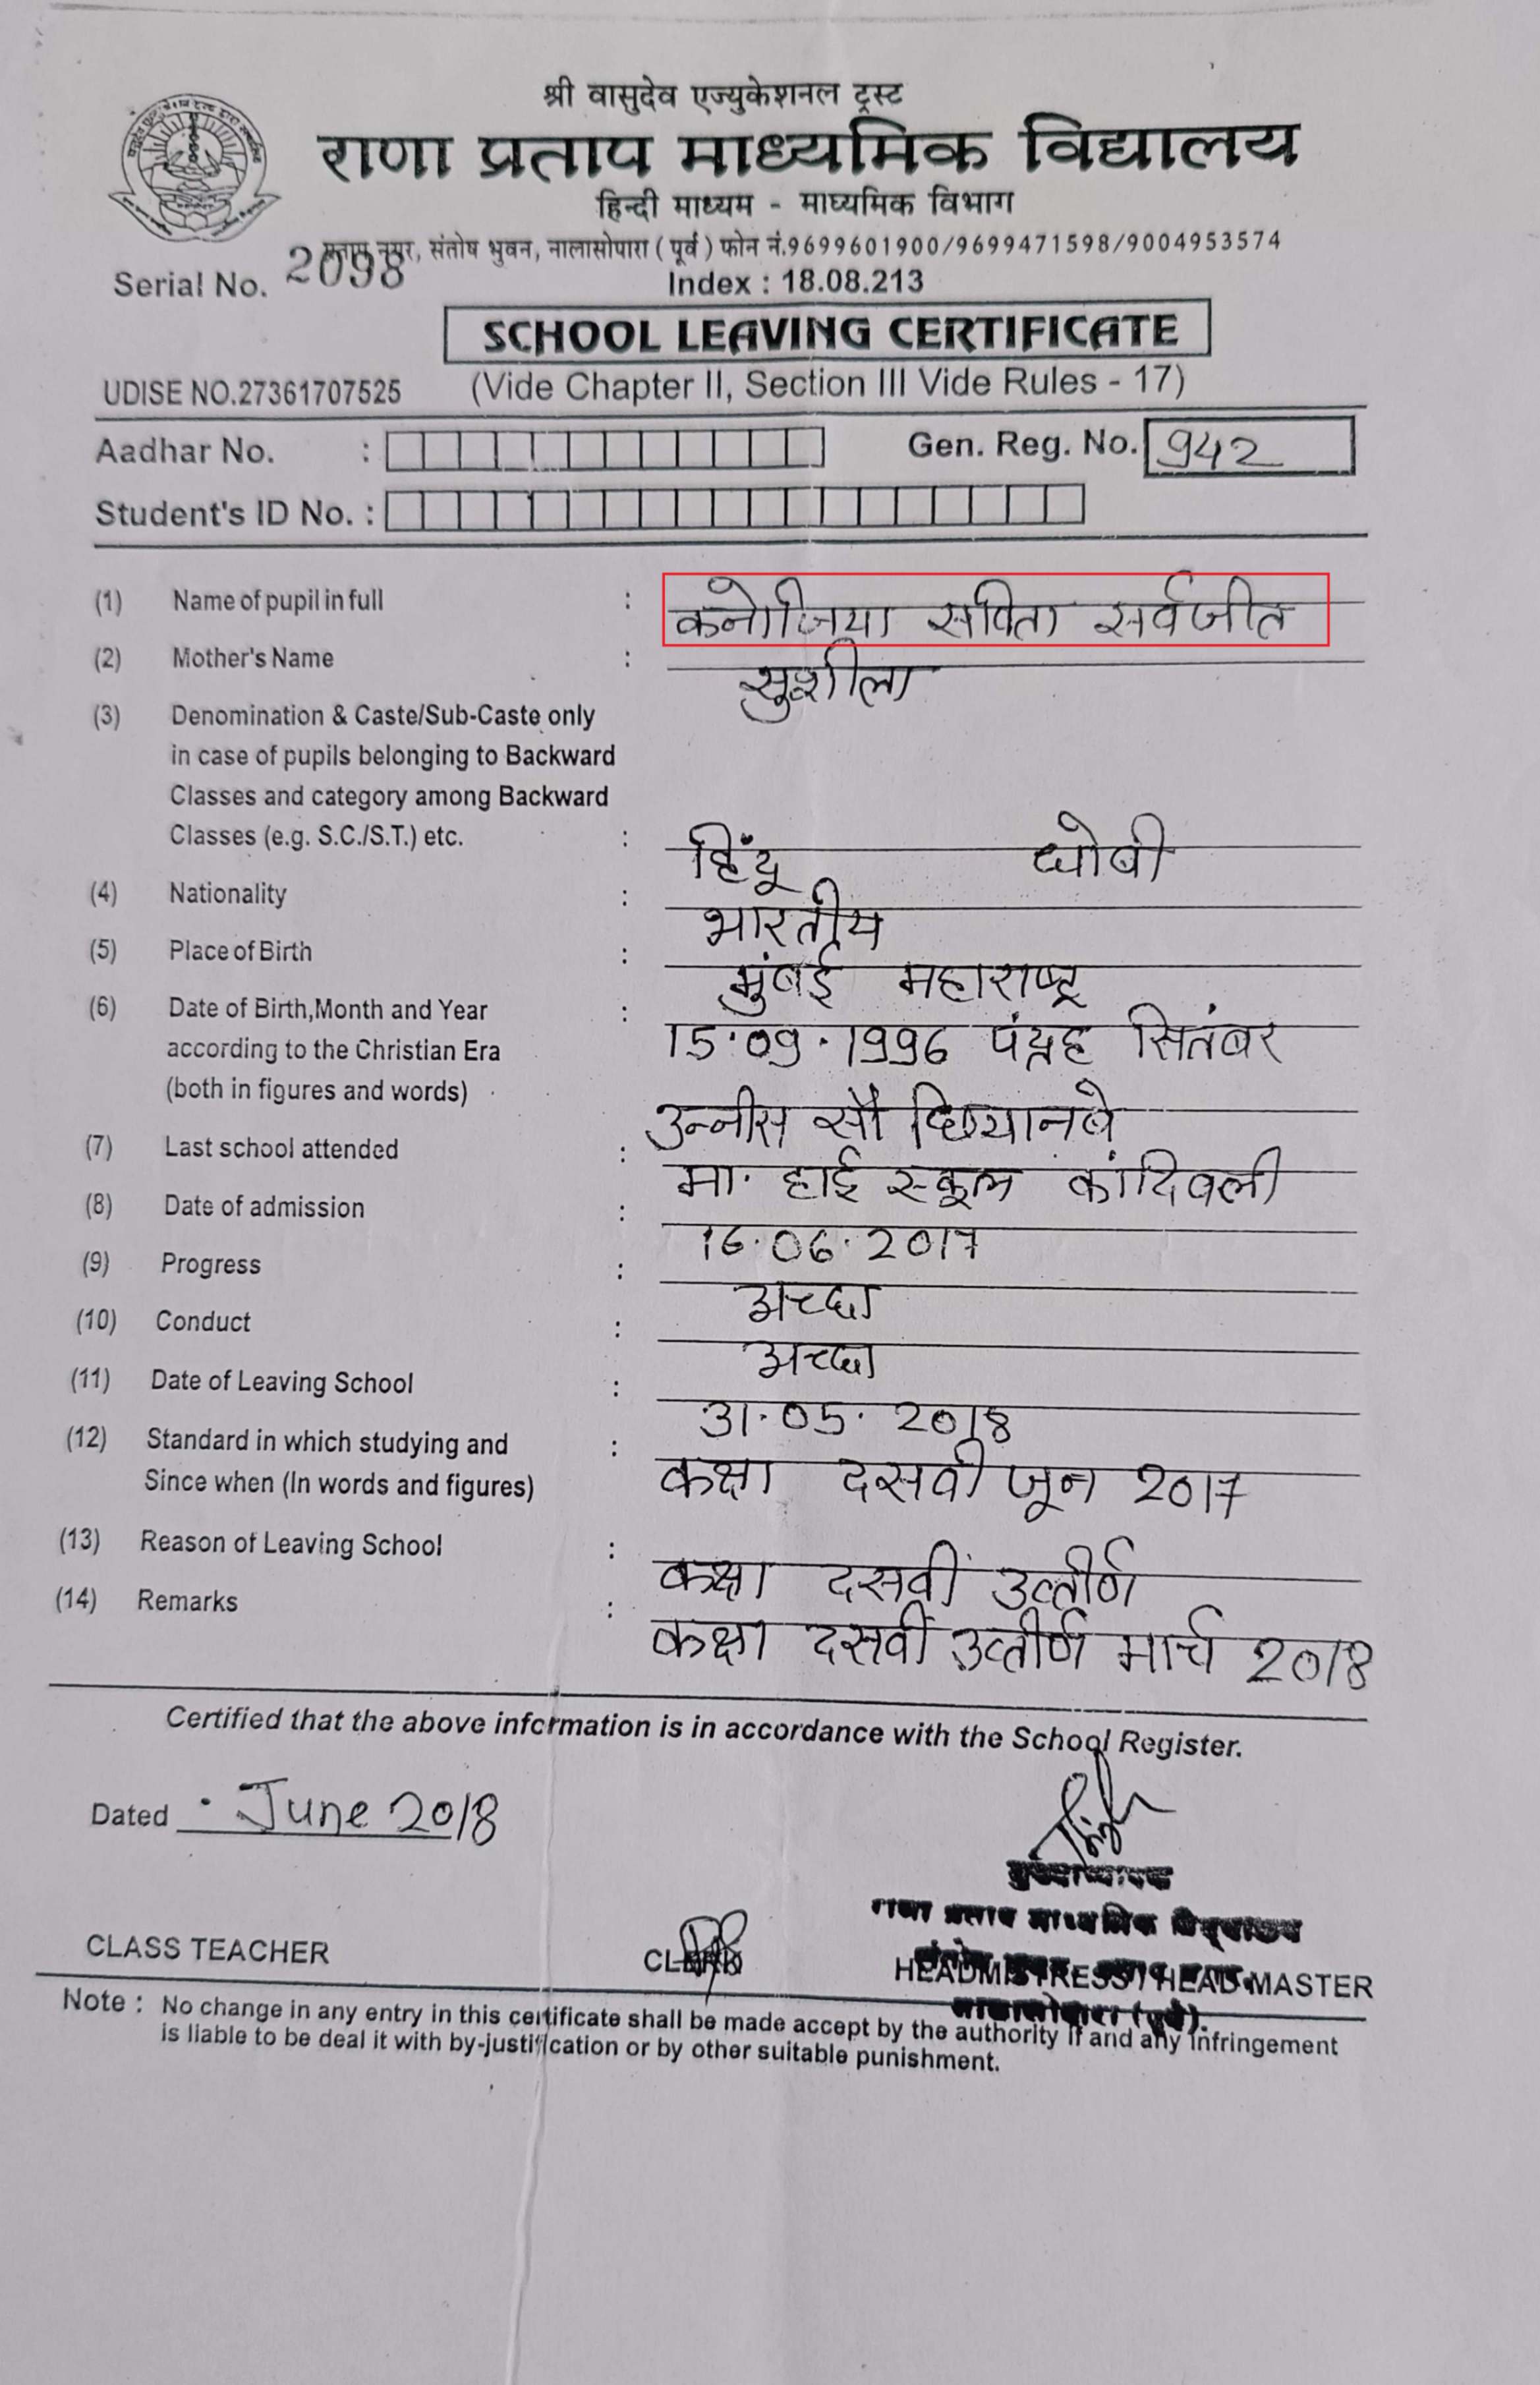 श्री वासुदेव एज्युकेशनल ट्रस्ट
राणा प्रताप माध्यमिक विद्यालय
हिन्दी माध्यम - माध्यमिक विभाग
प्रताप नगर, संतोष भुवन, नालासोपारा ( पूर्व ) फोन नं.9699601900/9699471598/9004953574
Serial No. 2098
Index : 18.08.213
SCHOOL LEAVING CERTIFICATE
UDISE NO.27361707525 (Vide Chapter II, Section III Vide Rules - 17)
Aadhar No. : Gen. Reg. No. 942
Student's ID No. :
(1) Name of pupil in full : कनोजिया सविता सर्वजीत
(2) Mother's Name : सुशीला
(3) Denomination & Caste/Sub-Caste only
in case of pupils belonging to Backward
Classes and category among Backward
Classes (e.g. S.C./S.T.) etc. : हिंदू धोबी
(4) Nationality : भारतीय
(5) Place of Birth : मुंबई महाराष्ट्र
(6) Date of Birth,Month and Year : 15.09.1996 पंद्रह सितंबर
according to the Christian Era
(both in figures and words) उन्नीस सौ छियानबे
(7) Last school attended : मा. हाई स्कूल कांदिवली
(8) Date of admission : 16.06.2017
(9) Progress : अच्छा
(10) Conduct : अच्छा
(11) Date of Leaving School : 31.05.2018
(12) Standard in which studying and : कक्षा दसवी जून 2017
Since when (In words and figures)
(13) Reason of Leaving School : कक्षा दसवीं उत्तीर्ण
(14) Remarks : कक्षा दसवीं उत्तीर्ण मार्च 2018
Certified that the above information is in accordance with the School Register.
Dated June 2018
मुख्याध्यापक
राणा प्रताप माध्यमिक विद्यालय
CLASS TEACHER CLERK HEADMISTRESS / HEAD MASTER
नालासोपारा (पूर्व).
Note : No change in any entry in this certificate shall be made accept by the authority if and any infringement
is liable to be deal it with by-justification or by other suitable punishment.